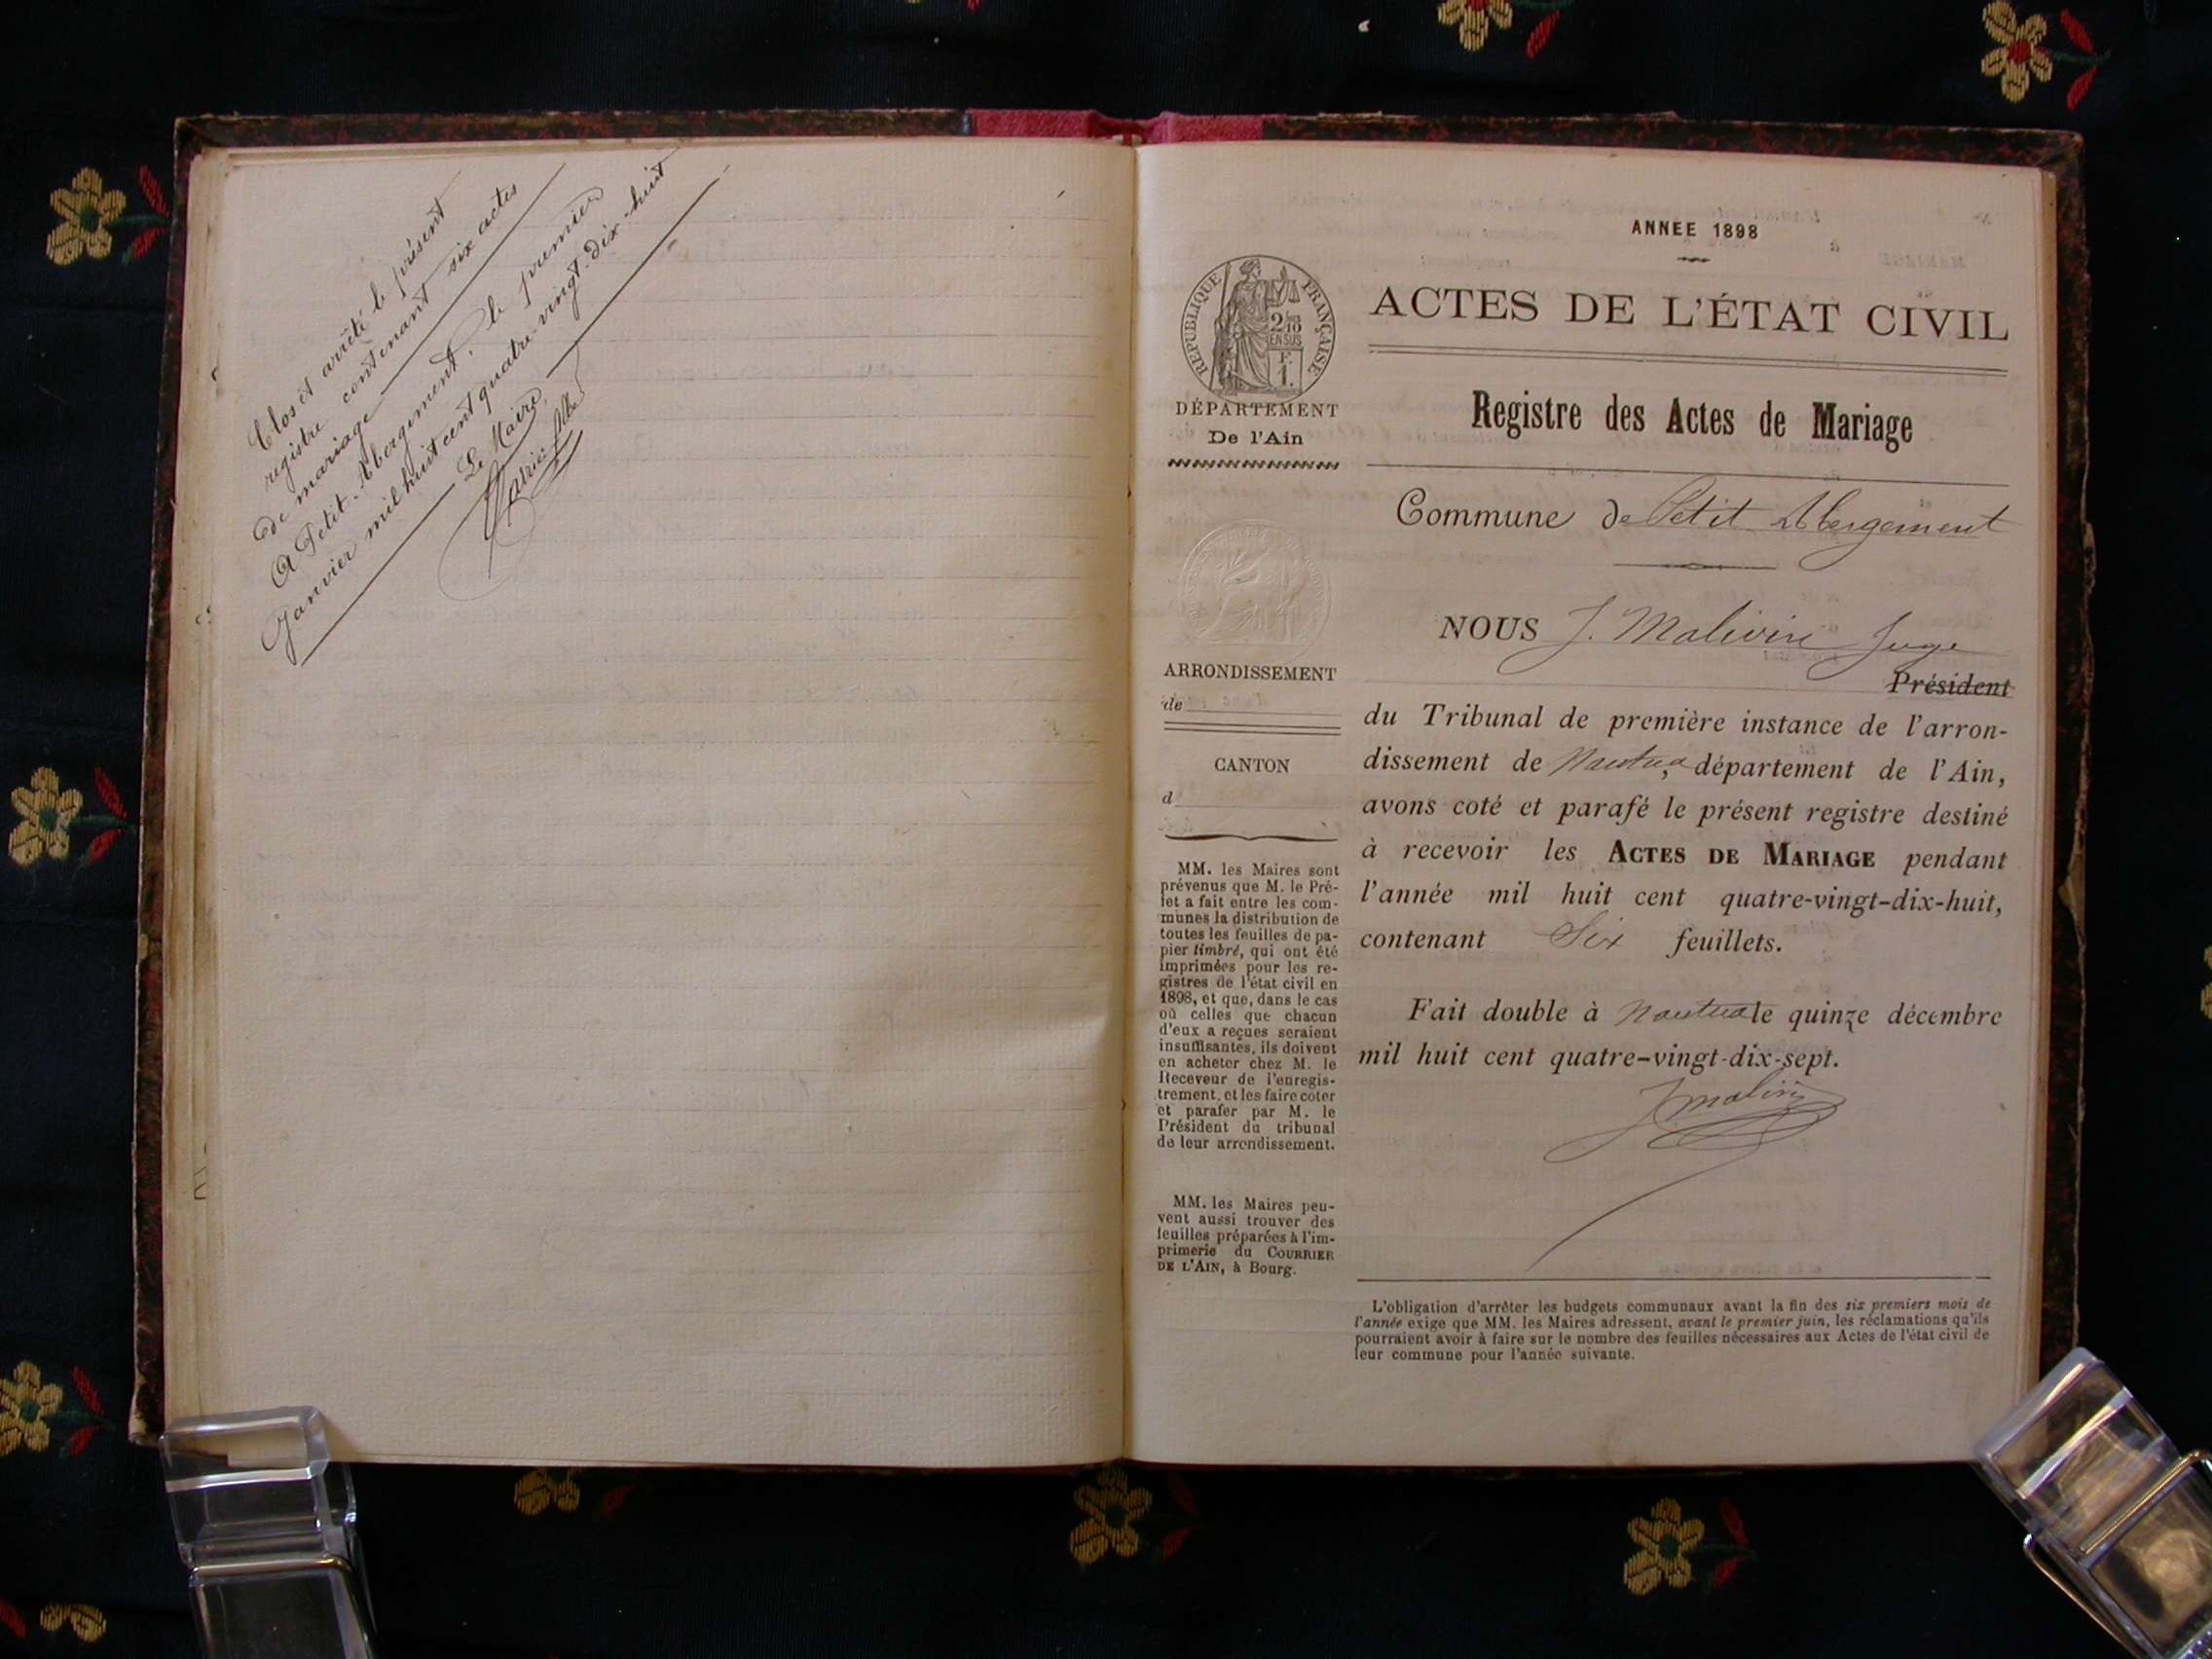 Clos et arrêté le présent
registre contenant six actes
de mariage
A Petit-Abergement, le premier
Janvier mil huit cent quatre-vingt-dix-huit
Le Maire,
ANNÉE 1898
ACTES DE L'ÉTAT CIVIL
Registre des Actes de Mariage
Commune de Petit Abergement
NOUS J. Malivin Juge
Président
du Tribunal de première instance de l'arron-
dissement de Nantua, département de l'Ain,
avons coté et parafé le présent registre destiné
à recevoir les ACTES DE MARIAGE pendant
l'année mil huit cent quatre-vingt-dix-huit,
contenant Six feuillets.
Fait double à Nantua le quinze décembre
mil huit cent quatre-vingt-dix-sept.
J Malivin
L'obligation d'arrêter les budgets communaux avant la fin des six premiers mois de
l'année exige que MM. les Maires adressent, avant le premier juin, les réclamations qu'ils
pourraient avoir à faire sur le nombre des feuilles nécessaires aux Actes de l'état civil de
leur commune pour l'année suivante.
RÉPUBLIQUE FRANÇAISE
2/10
EN SUS
F.
1.
DÉPARTEMENT
De l'Ain
ARRONDISSEMENT
de
CANTON
d
MM. les Maires sont
prévenus que M. le Pré-
fet a fait entre les com-
munes la distribution de
toutes les feuilles de pa-
pier timbré, qui ont été
imprimées pour les re-
gistres de l'état civil en
1898, et que, dans le cas
où celles que chacun
d'eux a reçues seraient
insuffisantes, ils doivent
en acheter chez M. le
Receveur de l'enregis-
trement, et les faire coter
et parafer par M. le
Président du tribunal
de leur arrondissement.
MM. les Maires peu-
vent aussi trouver des
feuilles préparées à l'im-
primerie du COURRIER
DE L'AIN, à Bourg.